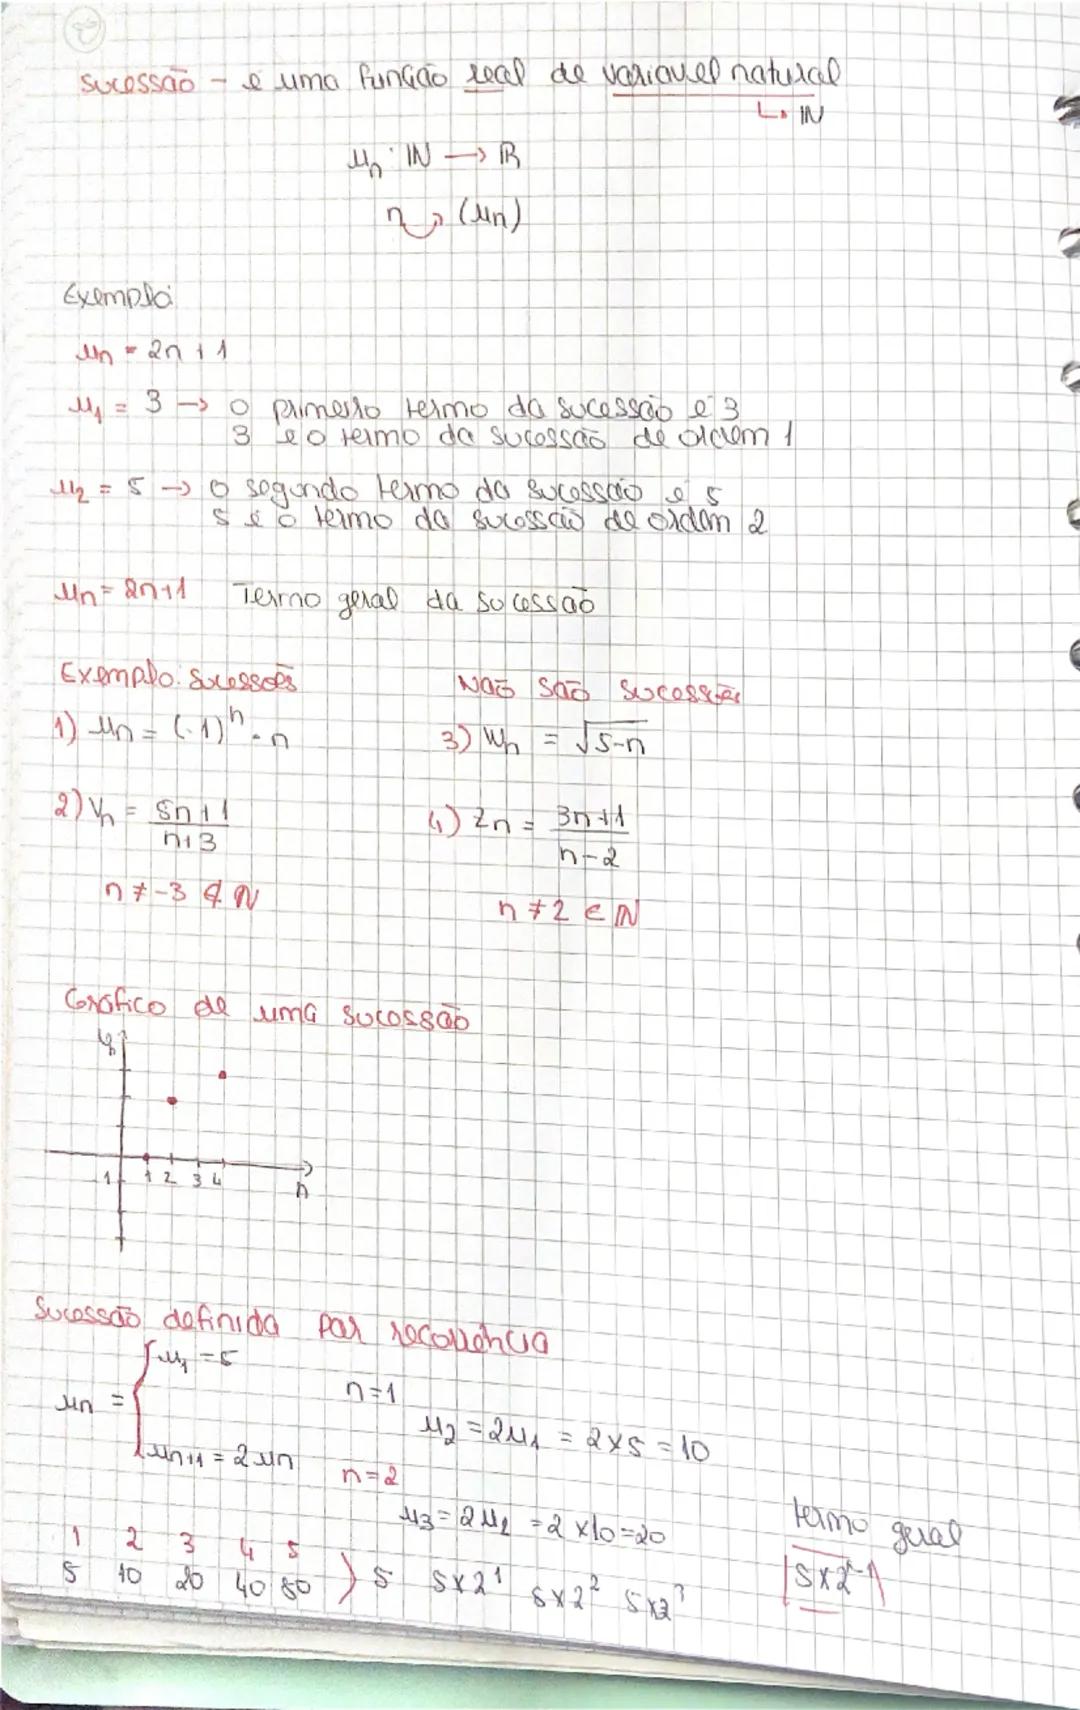 Sucessão - é uma função real de variavel natural
↳ IN
un: IN → IR
n ↷ (un)
Exemplo:
un = 2n + 1
u1 = 3 → O primeiro termo da sucessão é 3
3 é o termo da sucessão de ordem 1
u2 = 5 → O segundo termo da sucessão é 5
5 é o termo da sucessão de ordem 2
un = 2n+1 Termo geral da sucessão
Exemplo: Sucessões Não são sucessões
1) un = (-1)^n · n 3) wn = √5-n
2) Vn = 5n+1 / n+3 4) Zn = 3n+1 / n-2
n ≠ -3 ∉ IN n ≠ 2 ∈ IN
Gráfico de uma sucessão
y
1 1 2 3 4 n
Sucessão definida par recorrência
un = { u1 = 5 n=1
u2 = 2u1 = 2×5 = 10
un+1 = 2un n=2
u3 = 2u2 = 2×10=20 termo geral
1 2 3 4 5
5 10 20 40 80 ) 5 5×2^1 5×2^2 5×2^3 5×2^n-1